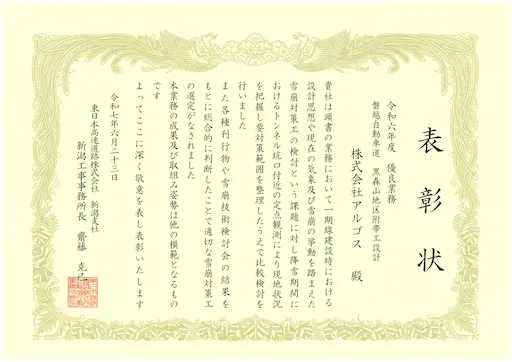 表彰状
令和六年度　優良業務
磐越自動車道　黒森山地区附帯工設計
株式会社アルゴス　殿
貴社は頭書の業務において一期線建設時における
設計思想や現在の気象及び雪崩の挙動を踏まえた
雪崩対策工の検討という課題に対し降雪期間に
おけるトンネル坑口付近の定点観測により現地状況
を把握し要対策範囲を整理したうえで比較検討を
行いました
また各種刊行物や雪崩技術検討会の結果を
もとに総合的に判断したことで適切な雪崩対策工
の選定がなされました
本業務の成果及び取り組み姿勢は他の模範となるもの
です
よってここに深く敬意を表し表彰いたします
令和七年六月二十三日
東日本高速道路株式会社　新潟支社
新潟工事事務所長　齋藤　克己